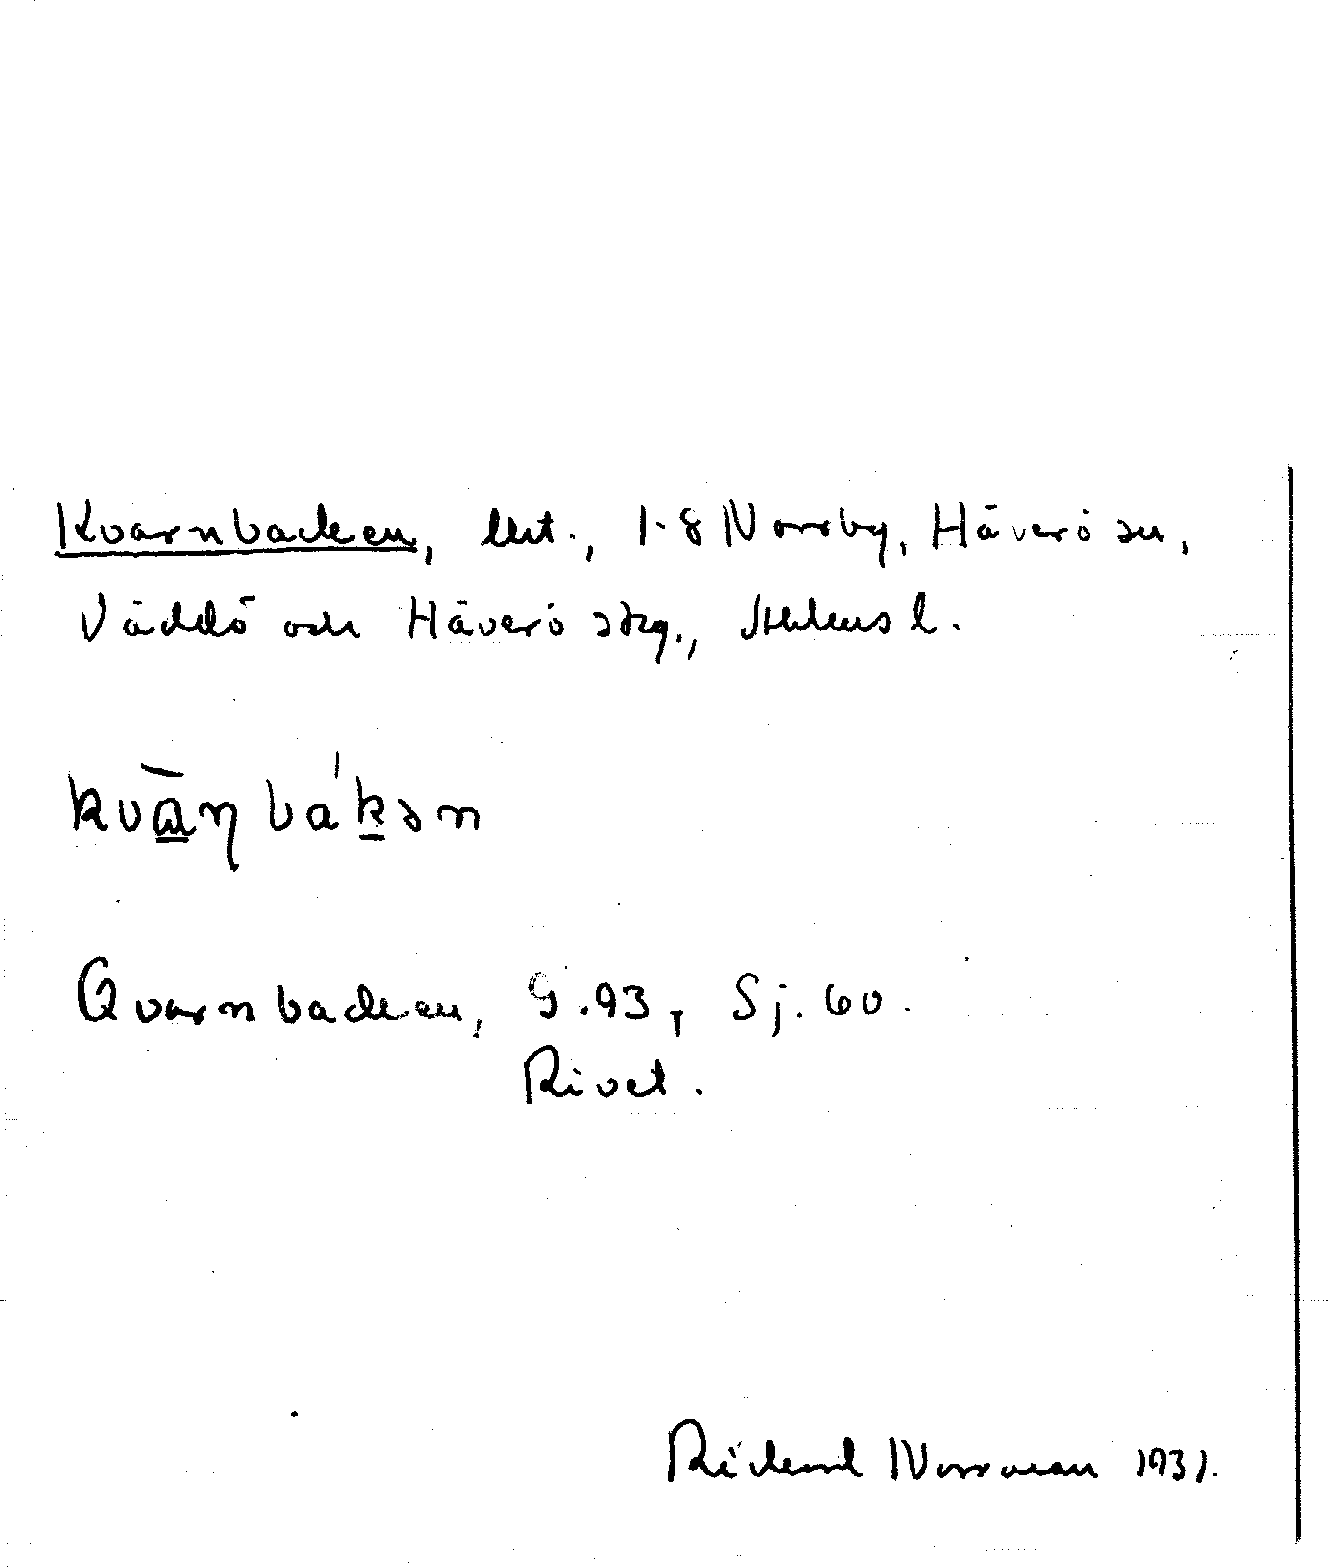 Kvarnbacken, lht., 1-8 Norrby, Häverö sn,
Väddö och Häverö skg., Sthlms l.
kvān̥bákən
Qvarnbacken, G. 93, Sj. 60.
Rivet.
Rickard Norrman 1931.